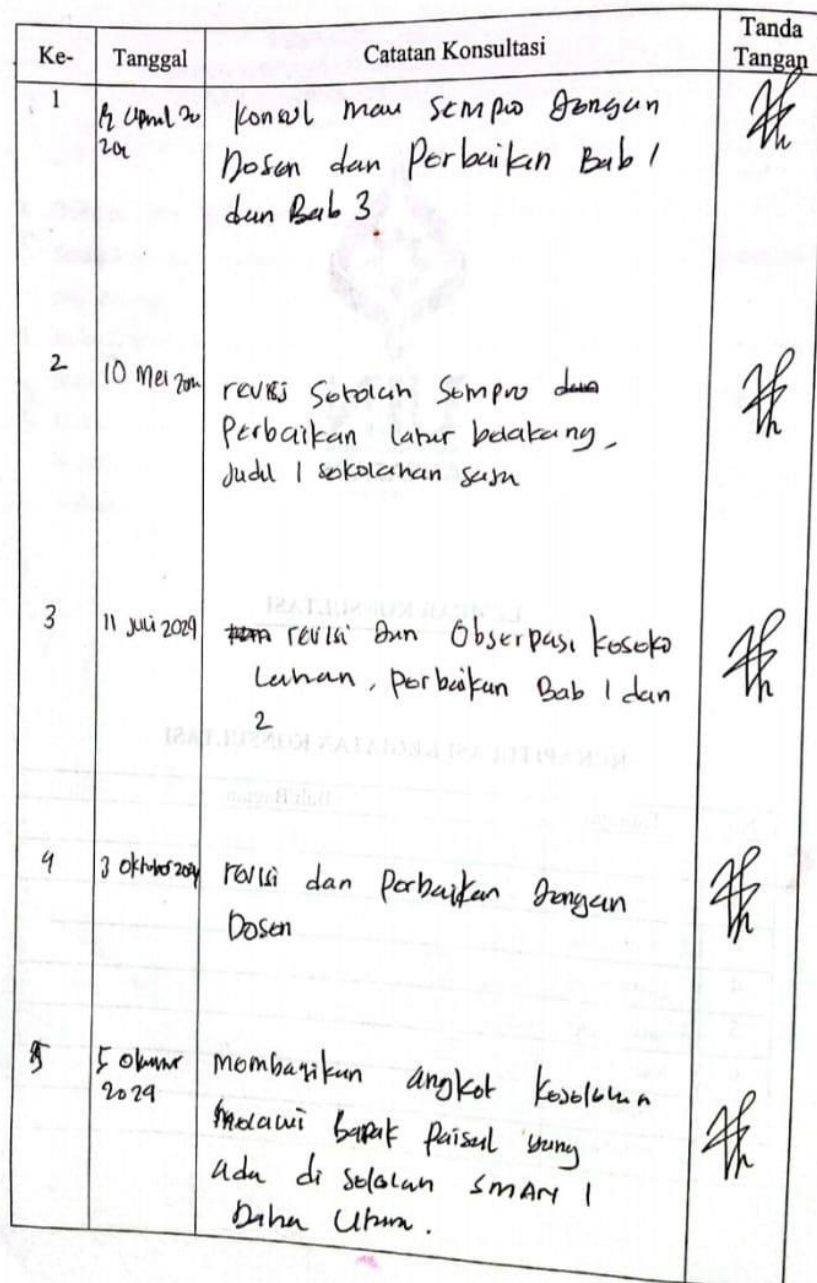 Ke- Tanggal Catatan Konsultasi Tanda Tangan
1 April 20 Konsul mau sempro dengan
Dosen dan Perbaikan Bab 1
dan Bab 3
2 10 Mei revisi Setolah Sempro
Perbaikan latar belakang,
Judul 1 sekolahan saja
3 11 Juli 2024 revisi Dan Obserpasi kesoko
Lahan, perbaikan Bab 1 dan
2
4 3 Oktober 2024 revisi dan Perbaikan dengan
Dosen
5 5 Oktober Membagikan angket kesolahan
2024 melalui bapak Paisal yang
ada di Sekolah SMAN 1
Daha Utara.
LEMBAR KONSULTASI
REKAPITULASI KEGIATAN KONSULTASI